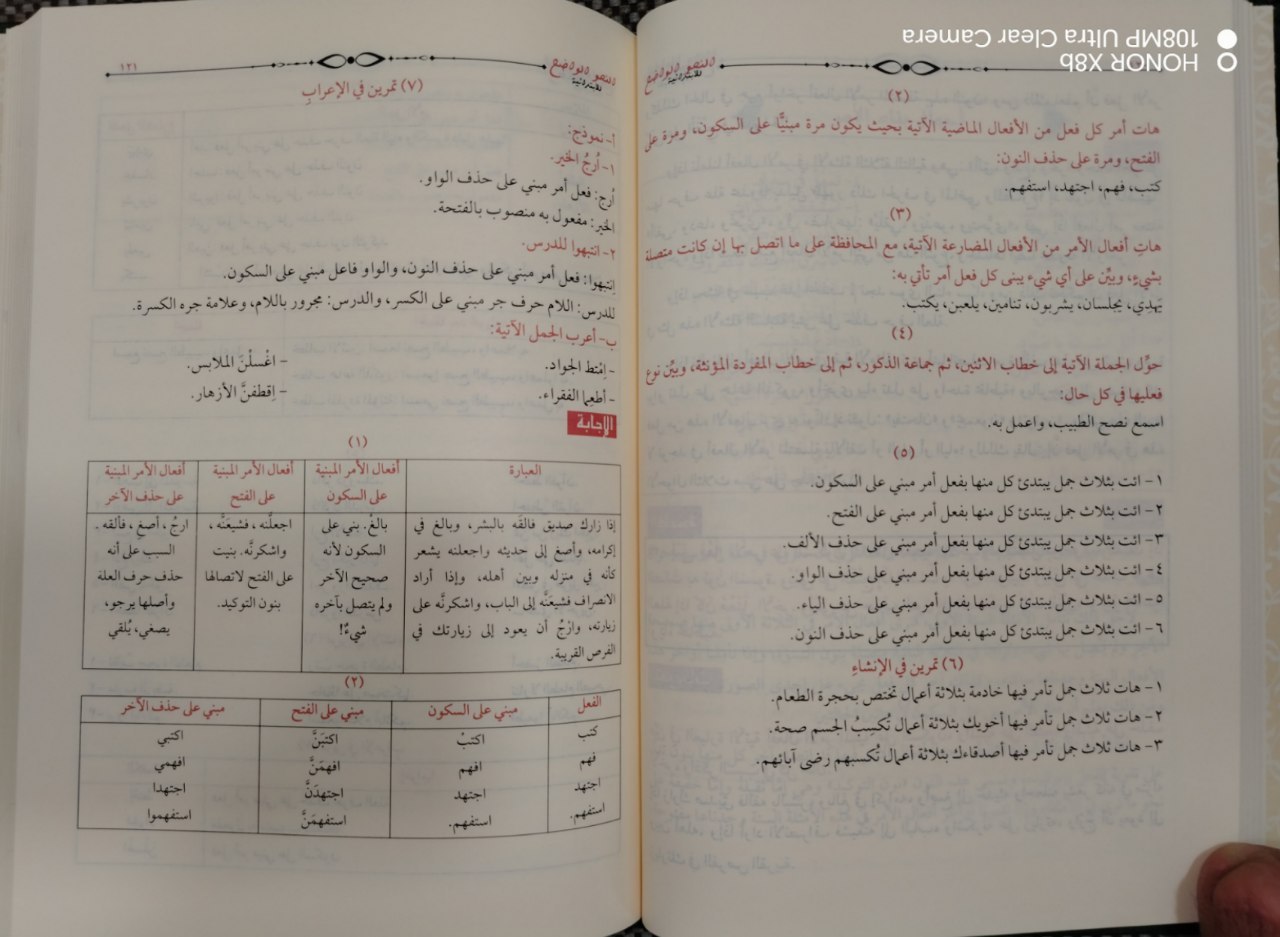 النحو الواضح
للابتدائية
(٢)
هات أمر كل فعل من الأفعال الماضية الآتية بحيث يكون مرة مبنيًّا على السكون، ومرة على
الفتح، ومرة على حذف النون:
كتب، فهم، اجتهد، استفهم.
(٣)
هاتِ أفعال الأمر من الأفعال المضارعة الآتية، مع المحافظة على ما اتصل بها إن كانت متصلة
بشيءٍ، وبيِّن على أي شيء يبنى كل فعل أمر تأتي به:
يَهدِي، يجلسان، يشربون، تنامين، يلعبن، يكتب.
(٤)
حوِّل الجملة الآتية إلى خطاب الاثنين، ثم جماعة الذكور، ثم إلى خطاب المفردة المؤنثة، وبيِّن نوع
فعليها في كل حال:
اسمع نصح الطبيب، واعمل به.
(٥)
١- ائت بثلاث جمل يبتدئ كل منها بفعل أمر مبني على السكون.
٢- ائت بثلاث جمل يبتدئ كل منها بفعل أمر مبني على الفتح.
٣- ائت بثلاث جمل يبتدئ كل منها بفعل أمر مبني على حذف الألف.
٤- ائت بثلاث جمل يبتدئ كل منها بفعل أمر مبني على حذف الواو.
٥- ائت بثلاث جمل يبتدئ كل منها بفعل أمر مبني على حذف الياء.
٦- ائت بثلاث جمل يبتدئ كل منها بفعل أمر مبني على حذف النون.
(٦) تمرين في الإنشاءِ
١- هات ثلاث جمل تأمر فيها خادمة بثلاثة أعمال تختص بحجرة الطعام.
٢- هات ثلاث جمل تأمر فيها أخويك بثلاثة أعمال تُكسِبُ الجسم صحة.
٣- هات ثلاث جمل تأمر فيها أصدقاءك بثلاثة أعمال تُكسبهم رضى آبائهم.
النحو الواضح
للابتدائية
١٢١
(٧) تمرين في الإعرابِ
أ- نموذج:
١- اُرجُ الخير.
اُرج: فعل أمر مبني على حذف الواو.
الخير: مفعول به منصوب بالفتحة.
٢- انتبهوا للدرس.
اِنتبهوا: فعل أمر مبني على حذف النون، والواو فاعل مبني على السكون.
للدرس: اللام حرف جر مبني على الكسر، والدرس: مجرور باللام، وعلامة جره الكسرة.
ب- أعرب الجمل الآتية:
- اِمْتَط الجواد. - اغْسلْنَ الملابس.
- أطعِما الفقراء. - اِقطفنَّ الأزهار.
الإجابة
(١)
العبارة | أفعال الأمر المبنية على السكون | أفعال الأمر المبنية على الفتح | أفعال الأمر المبنية على حذف الآخر
إذا زارك صديق فالقَه بالبشر، وبالغ في | بالغْ. بني على | اجعلْنه، فشيعَنَّه، | ارجُ، أصغِ، فألقه ـ
إكرامه، وأصغ إلى حديثه واجعلنه يشعر | السكون لأنه | واشكرنَّه. بنيت | السبب على أنه
كأنه في منزله وبين أهله، وإذا أراد | صحيح الآخر | على الفتح لاتصالها | حذف حرف العلة
الانصراف فشيعَنَّه إلى الباب، واشكرنَّه على | ولم يتصل بآخره | بنون التوكيد. | وأصلها يرجو،
زيارته، وارْجُ أن يعود إلى زيارتك في | شيءٌ! | | يصغي، يُلقي
الفرص القريبة.
(٢)
الفعل | مبني على السكون | مبني على الفتح | مبني على حذف الآخر
كتب | اكتبْ | اكتبَنَّ | اكتبي
فهم | افهم | افهمَنَّ | افهمي
اجتهد | اجتهد | اجتهدَنَّ | اجتهدا
استفهم. | استفهم. | استفهمَنَّ | استفهموا
HONOR X8b
108MP Ultra Clear Camera